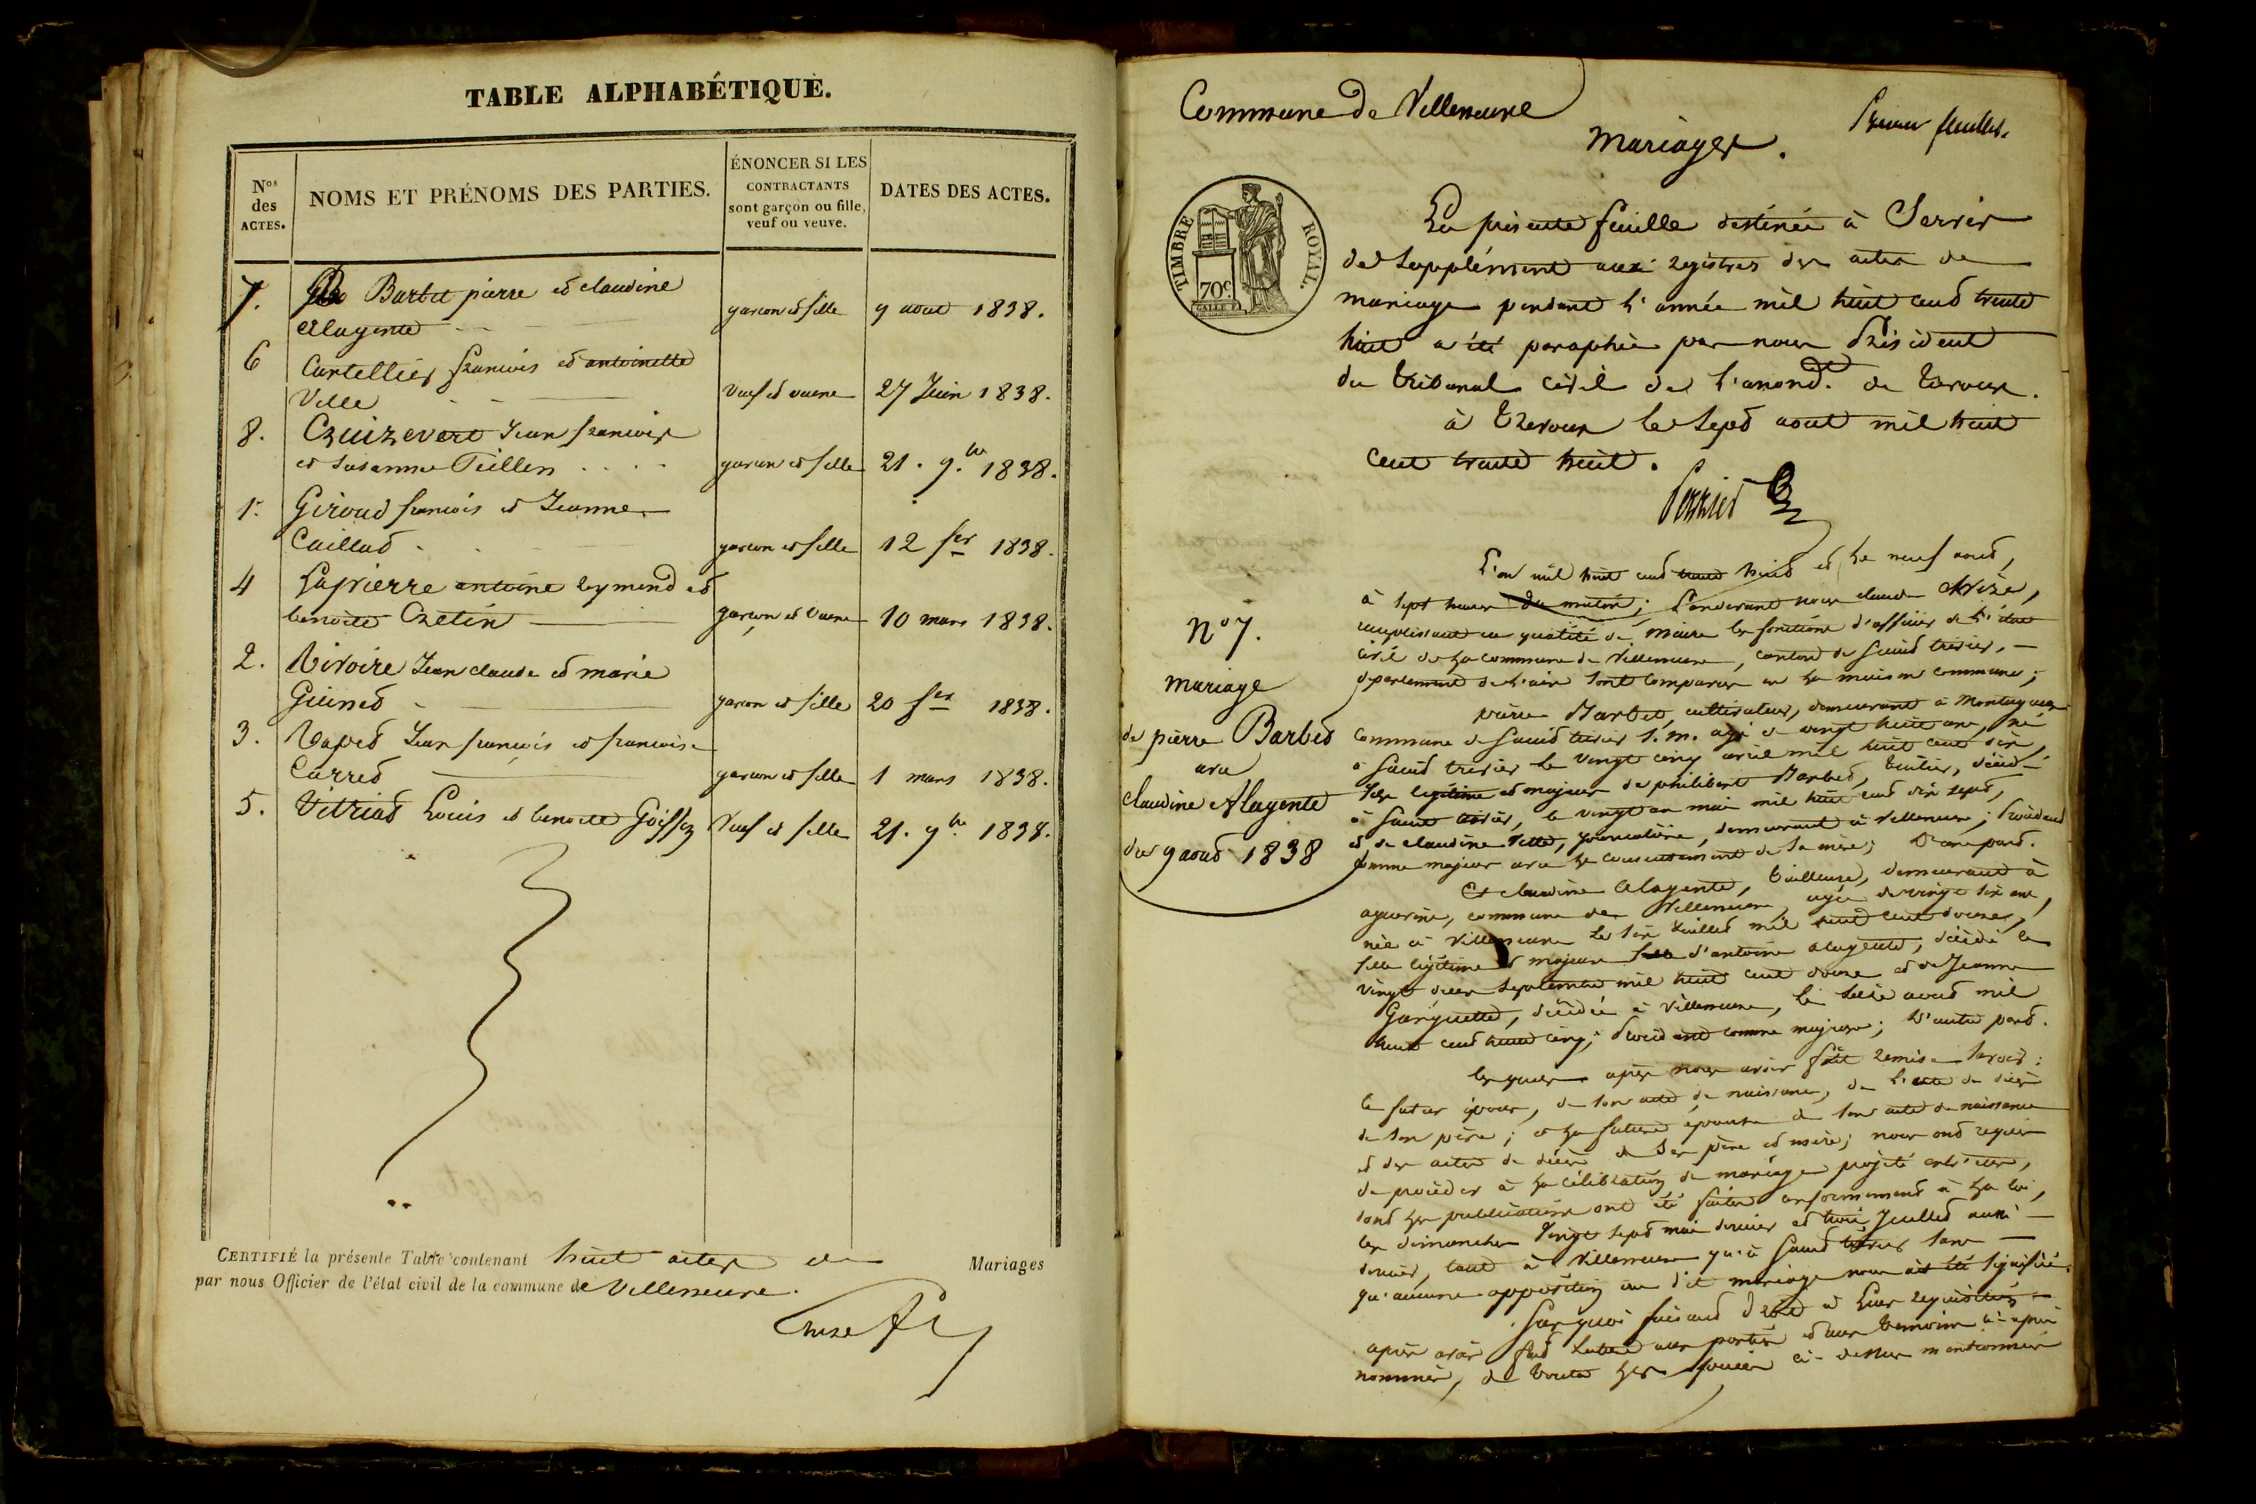 TABLE ALPHABÉTIQUE.
Nos des ACTES.
NOMS ET PRÉNOMS DES PARTIES.
ÉNONCER SI LES
CONTRACTANTS
sont garçon ou fille,
veuf ou veuve.
DATES DES ACTES.
7. Barbet pierre et claudine
Alagente garcon et fille 9 aout 1838.
6 Cartellier francois et antoinette
Ville Veuf et veuve 27 Juin 1838.
8. Cruizevert Jean francois
et Susanne garcon et fille 21. 9.bre 1838.
1. Giroud francois et Jeanne
Caillad garcon et fille 12 fer 1838.
4 Lapierre antoine reymond et
benoite Cretin garcon et veuve 10 mars 1838.
2. Jean claude et marie
Guined garcon et fille 20 fer 1838.
3. Jean francois et francoise
Carred garcon et fille 1 mars 1838.
5. Louis et benoite Veuf et fille 21. 9.bre 1838.
CERTIFIÉ la présente Table contenant huit actes de Mariages
par nous Officier de l'état civil de la commune de Villeneuve.
Commune de Villeneuve
Mariages.
TIMBRE ROYAL.
70c
La présente feuille destinée à Servir
de Supplément aux registres des actes de
mariage pendant l'année mil huit cent trente
huit a été paraphée par nous Président
du tribunal civil de l'arrond.t de trevoux.
à Trevoux le Sept aout mil huit
cent trente huit.
N° 7.
mariage
de pierre Barbet
avec
claudine Alagente
du 9 aout 1838
L'an mil huit cent trente huit et le neuf aout,
à sept heures du matin; Pardevant nous claude Chize,
remplissant en qualité de maire les fonctions d'officier de l'état
civil de la commune de Villeneuve, canton de Saint trivier,
département de l'ain sont comparus en la maison commune;
pierre Barbet, cultivateur, demeurant à
commune de Saint trivier s. m. agé de vingt huit ans, né
à Saint trivier le vingt cinq avril mil huit cent dix,
fils légitime et majeur de philibert Barbet, décédé
à Saint trivier, le vingt un mai mil huit cent dix sept,
et de claudine, demeurant à Villeneuve; Procédant
comme majeur avec le consentement de sa mère; D'une part.
Et claudine Alagente, tailleuse, demeurant à
commune de Villeneuve, agée de vingt six ans,
née à Villeneuve le six Juillet mil huit cent douze,
fille légitime et majeure d'antoine alagente, décédé le
vingt deux Septembre mil huit cent douze et de Jeanne
décédée à Villeneuve, le seize aout mil
huit cent cinq; procédant comme majeure; D'autre part.
lesquels après nous avoir fait remise Savoir:
le futur époux, de son acte de naissance, de l'acte de décès
de son père; et la future épouse de son acte de naissance
et des actes de décès de ses père et mère; nous ont requis
de procéder à la célébration de mariage projeté entr'eux,
dont les publications ont été faites conformement à la loi,
les dimanches vingt sept mai dernier et trois Juillet aussi
dernier, tant à Villeneuve qu'à Saint trivier sans
qu'aucune opposition au dit mariage nous ait été signifiée.
Sur quoi faisant droit à leur réquisition
après avoir fait lecture aux parties et aux témoins ci-après
nommés, de toutes les pièces ci-dessus mentionnées